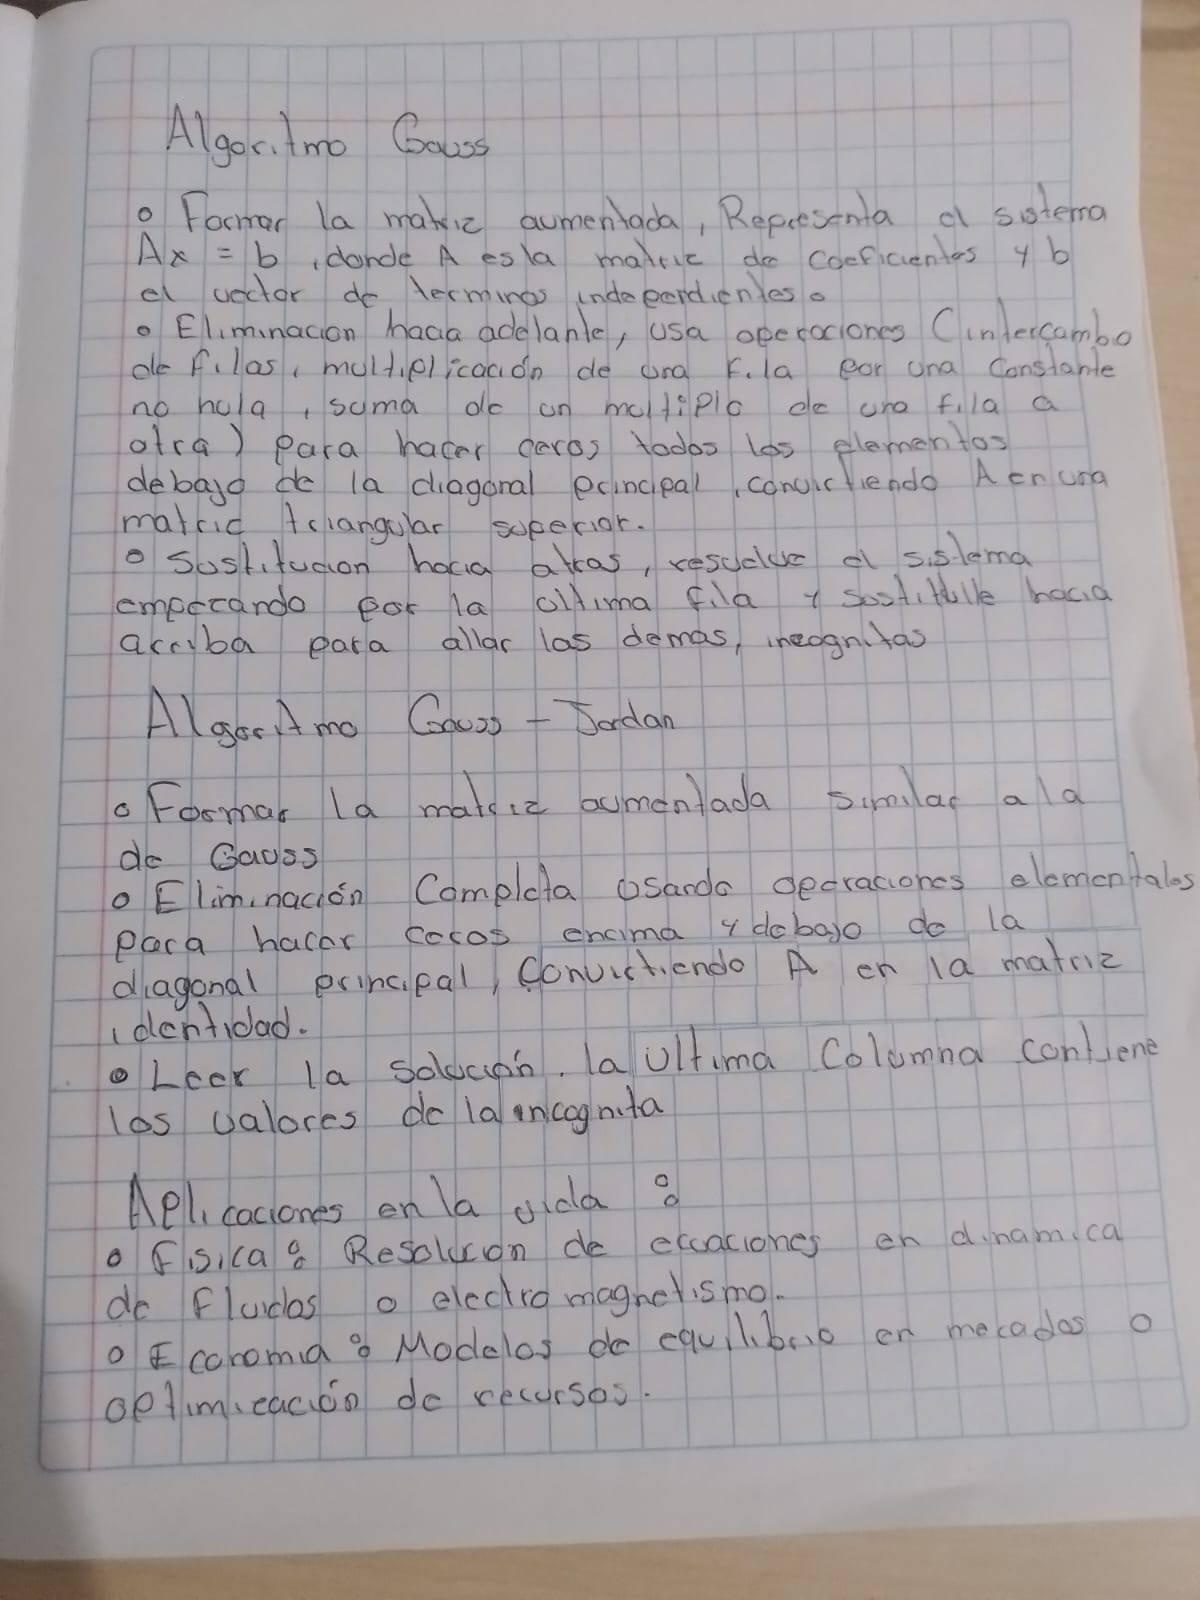 Algoritmo Gauss
o Formar la matriz aumentada, Representa el sistema
Ax = b, donde A es la matriz de coeficientes y b
el vector de terminos independientes.
o Eliminacion hacia adelante, usa operaciones (intercambo
de filas, multiplicación de una fila por una constante
no nula, suma de un multiplo de una fila a
otra) para hacer ceros todos los elementos
debajo de la diagonal principal, convirtiendo A en una
matriz triangular superior.
o Sustitucion hacia atras, resuelve el sistema
empezando por la ultima fila y sostitulle hacia
arriba para allar las demas, incognitas
Algoritmo Gauss - Jordan
o Formar la matriz aumentada similar a la
de Gauss
o Eliminación Completa usando operaciones elementales
para hacer ceros encima y debajo de la
diagonal principal, Convirtiendo A en la matriz
identidad.
o Leer la solución. la ultima Columna contiene
los valores de la incognita
Aplicaciones en la vida :
o Fisica : Resolucion de ecuaciones en dinamica
de Fluidos o electro magnetismo.
o Economia : Modelos de equilibrio en mecados o
optimización de recursos.